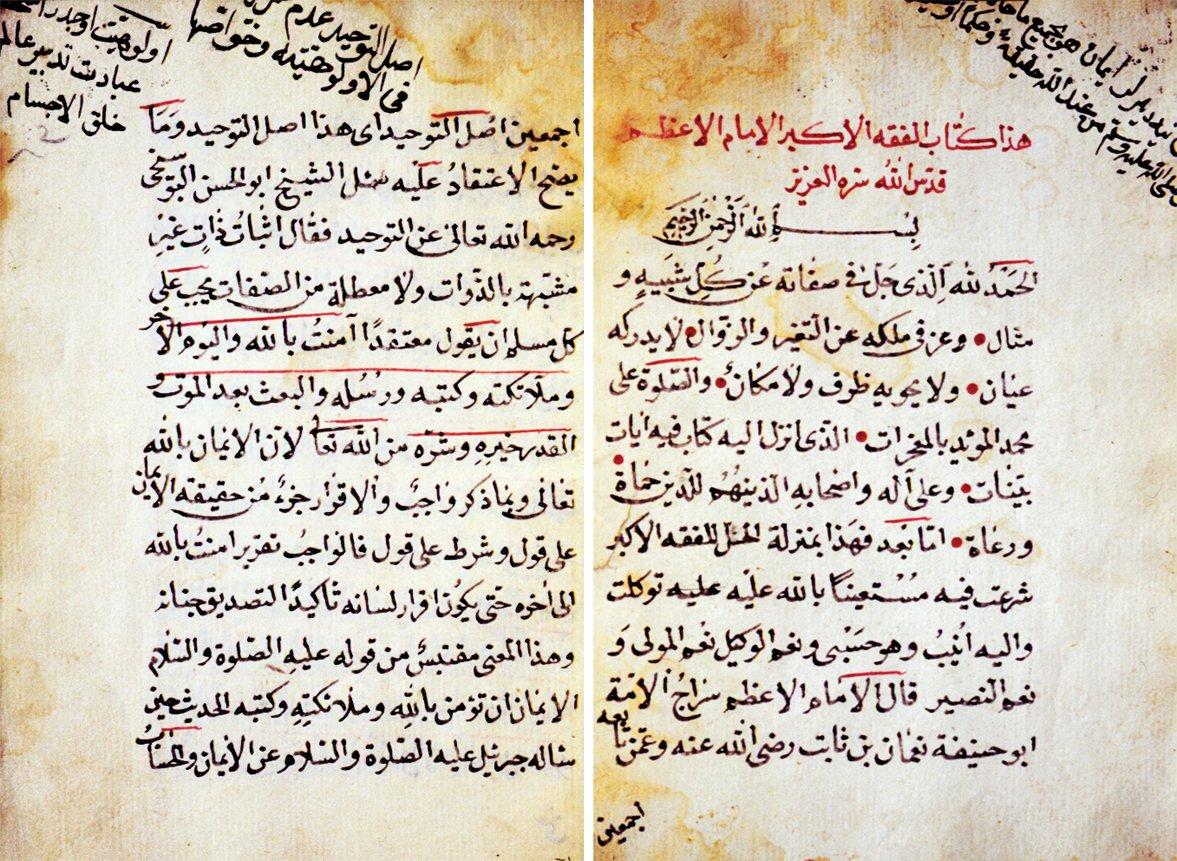 هذا كتاب الفقه الاكبر الامام الاعظم
قدس الله سره العزيز
بسم الله الرحمن الرحيم
الحمد لله الذى جل فى صفاته عن كل شبيه و
مثال • وعز فى ملكه عن التغير والزوال • لا يدركه
عيان • ولا يحويه ظرف ولا مكان • والصلوة على
محمد المؤيد بالمعجزات • الذى انزل اليه كتاب فيه ايات
بينات • وعلى آله واصحابه الذينهم للدين حماة •
ورعاة • اما بعد فهذا بمنزلة الحل للفقه الاكبر
شرعت فيه مستعينا بالله عليه عليه توكلت
واليه انيب وهو حسبى ونعم الوكيل نعم المولى و
نعم النصير قال الامام الاعظم سراج الامة
ابو حنيفة نعمان بن ثابت رضى الله عنه وعمن تابعه
اجمعين
اصل التوحيد عدم
فى الالوهيته وخواصها
اولوهيت
عبادت تدبير عالم
خلق الاجسام
اجمعين اصل التوحيد اى هذا اصل التوحيد وما
يصح الاعتقاد عليه سئل الشيخ ابو الحسن
رحمه الله تعالى عن التوحيد فقال اثبات ذات غير
مشبهة بالذوات ولا معطلة من الصفات يجب على
كل مسلم ان يقول معتقدا آمنت بالله واليوم الآخر
وملائكته وكتبه ورسله والبعث بعد الموت و
القدر خيره وشره من الله تعالى لان الايمان بالله
تعالى وبما ذكر واجب والاقرار جزء من حقيقة الايمان
على قول وشرط على قول فالواجب تقرير امنت بالله
الى اخره حتى يكون اقرار لسانه تأكيدا لتصديق جنانه
وهذا المعنى مقتبس من قوله عليه الصلوة والسلام
الايمان ان تؤمن بالله وملائكته وكتبه الحديث حين
ساله جبرئيل عليه الصلوة والسلام عن الايمان والحساب